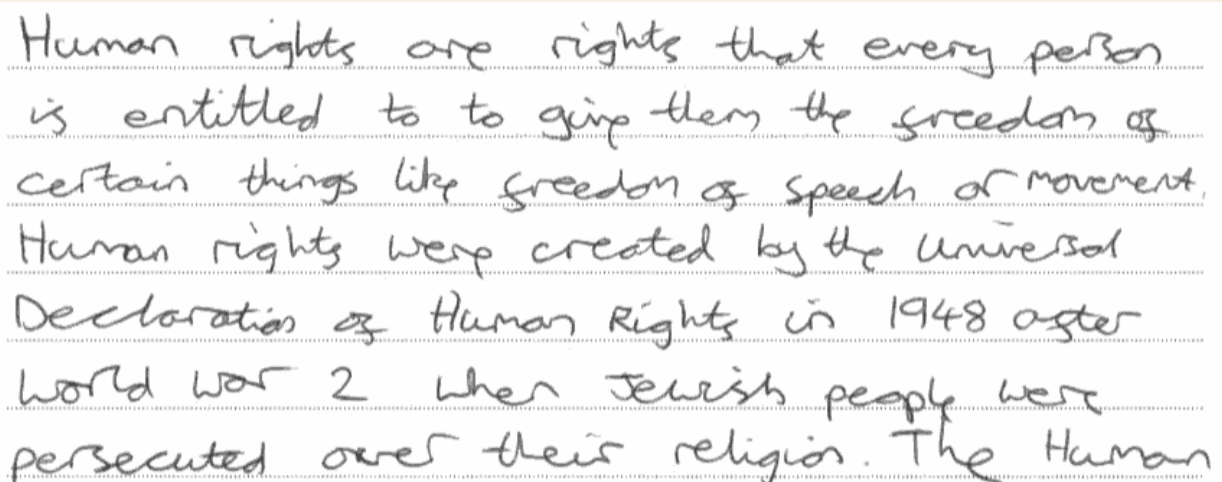 Human rights are rights that every person
is entitled to to give them the freedom of
certain things like freedom of speech or movement.
Human rights were created by the Universal
Declaration of Human Rights in 1948 after
world war 2 when Jewish people were
persecuted over their religion. The Human